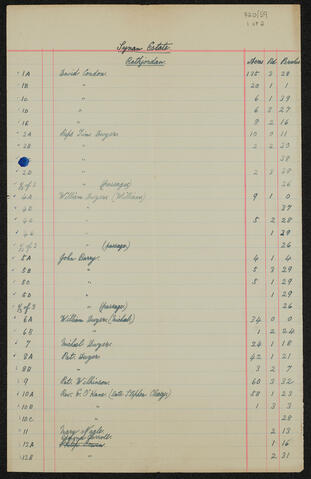 P20/59
1 of 2
Synan Estate.
Rathjordan.
Acres Rd Perches
1A David Condon. 125 3 28
1B " 20 1 1
1C " 6 1 39
1D " 6 3 27
1E " 8 2 16
2A Reps Tim Dwyer. 10 0 11
2B " 2 2 20
" 38
2D " 2 3 28
1/5 of 3 " (passages) 26
4A William Dwyer (William) 9 1 0
" 37
4C " 5 2 28
" 1 29
1/5 of 3 " (passages) 26
5A John Barry. 4 1 4
5B " 5 3 29
5C " 5 1 29
5D " 1 29
1/5 of 3 " (passages) 26
6A William Dwyer (Michael) 34 0 0
6B " 1 2 24
7 Michael Dwyer. 24 1 18
8A Pat. Dwyer. 42 1 21
8B " 3 2 7
9 Pat. Wilkinson. 60 3 32
10A Rev. E. O'Kane (late Stephen Cleary) 58 1 23
10B " 1 3 3
10C " 28
11 Mary Nagle. 2 13
12A Carroll. 1 16
12B " 2 31